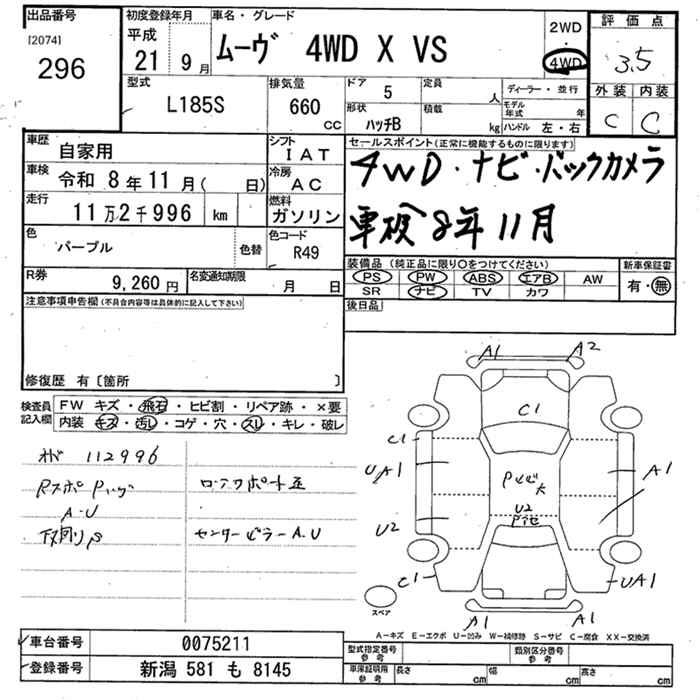 出品番号
[2074]
296
初度登録年月
平成
21 9月
車名・グレード
ムーヴ 4WD X VS
2WD
・
4WD
評価点
3.5
外装 内装
C C
型式
L185S
排気量
660
CC
ドア
5
形状
ハッチB
定員
人
積載
kg
ディーラー・並行
モデル年式 年
ハンドル 左・右
車歴
自家用
シフト
IAT
車検
令和 8年11月( 日)
冷房
AC
走行
11万2千996 km
燃料
ガソリン
色
パープル
色替
色コード
R49
R券
9,260円
名変通知期限
月 日
セールスポイント(正常に機能するものに限ります)
4WD・ナビ・バックカメラ
車検8年11月
装備品(純正品に限り○をつけてください)
PS PW ABS エアB AW
SR ナビ TV カワ
新車保証書
有・無
後日品
注意事項申告欄(不具合内容等は具体的に記入して下さい)
修復歴 有〔箇所 〕
検査員記入欄
FW キズ・飛石・ヒビ割・リペア跡・×要
内装 キズ・汚レ・コゲ・穴・スレ・キレ・破レ
112996
A・U
センターピラーA.U
A1 A2
C1
C1
UA1 A1
U2
U2
C1 UA1
A1 A1
スペア
A−キズ E−エクボ U−凹み W−補修跡 S−サビ C−腐食 XX−交換済
車台番号 0075211
登録番号 新潟 581 も 8145
型式指定番号 参考
類別区分番号 参考
車庫証明用 参考
長さ cm 幅 cm 高さ cm